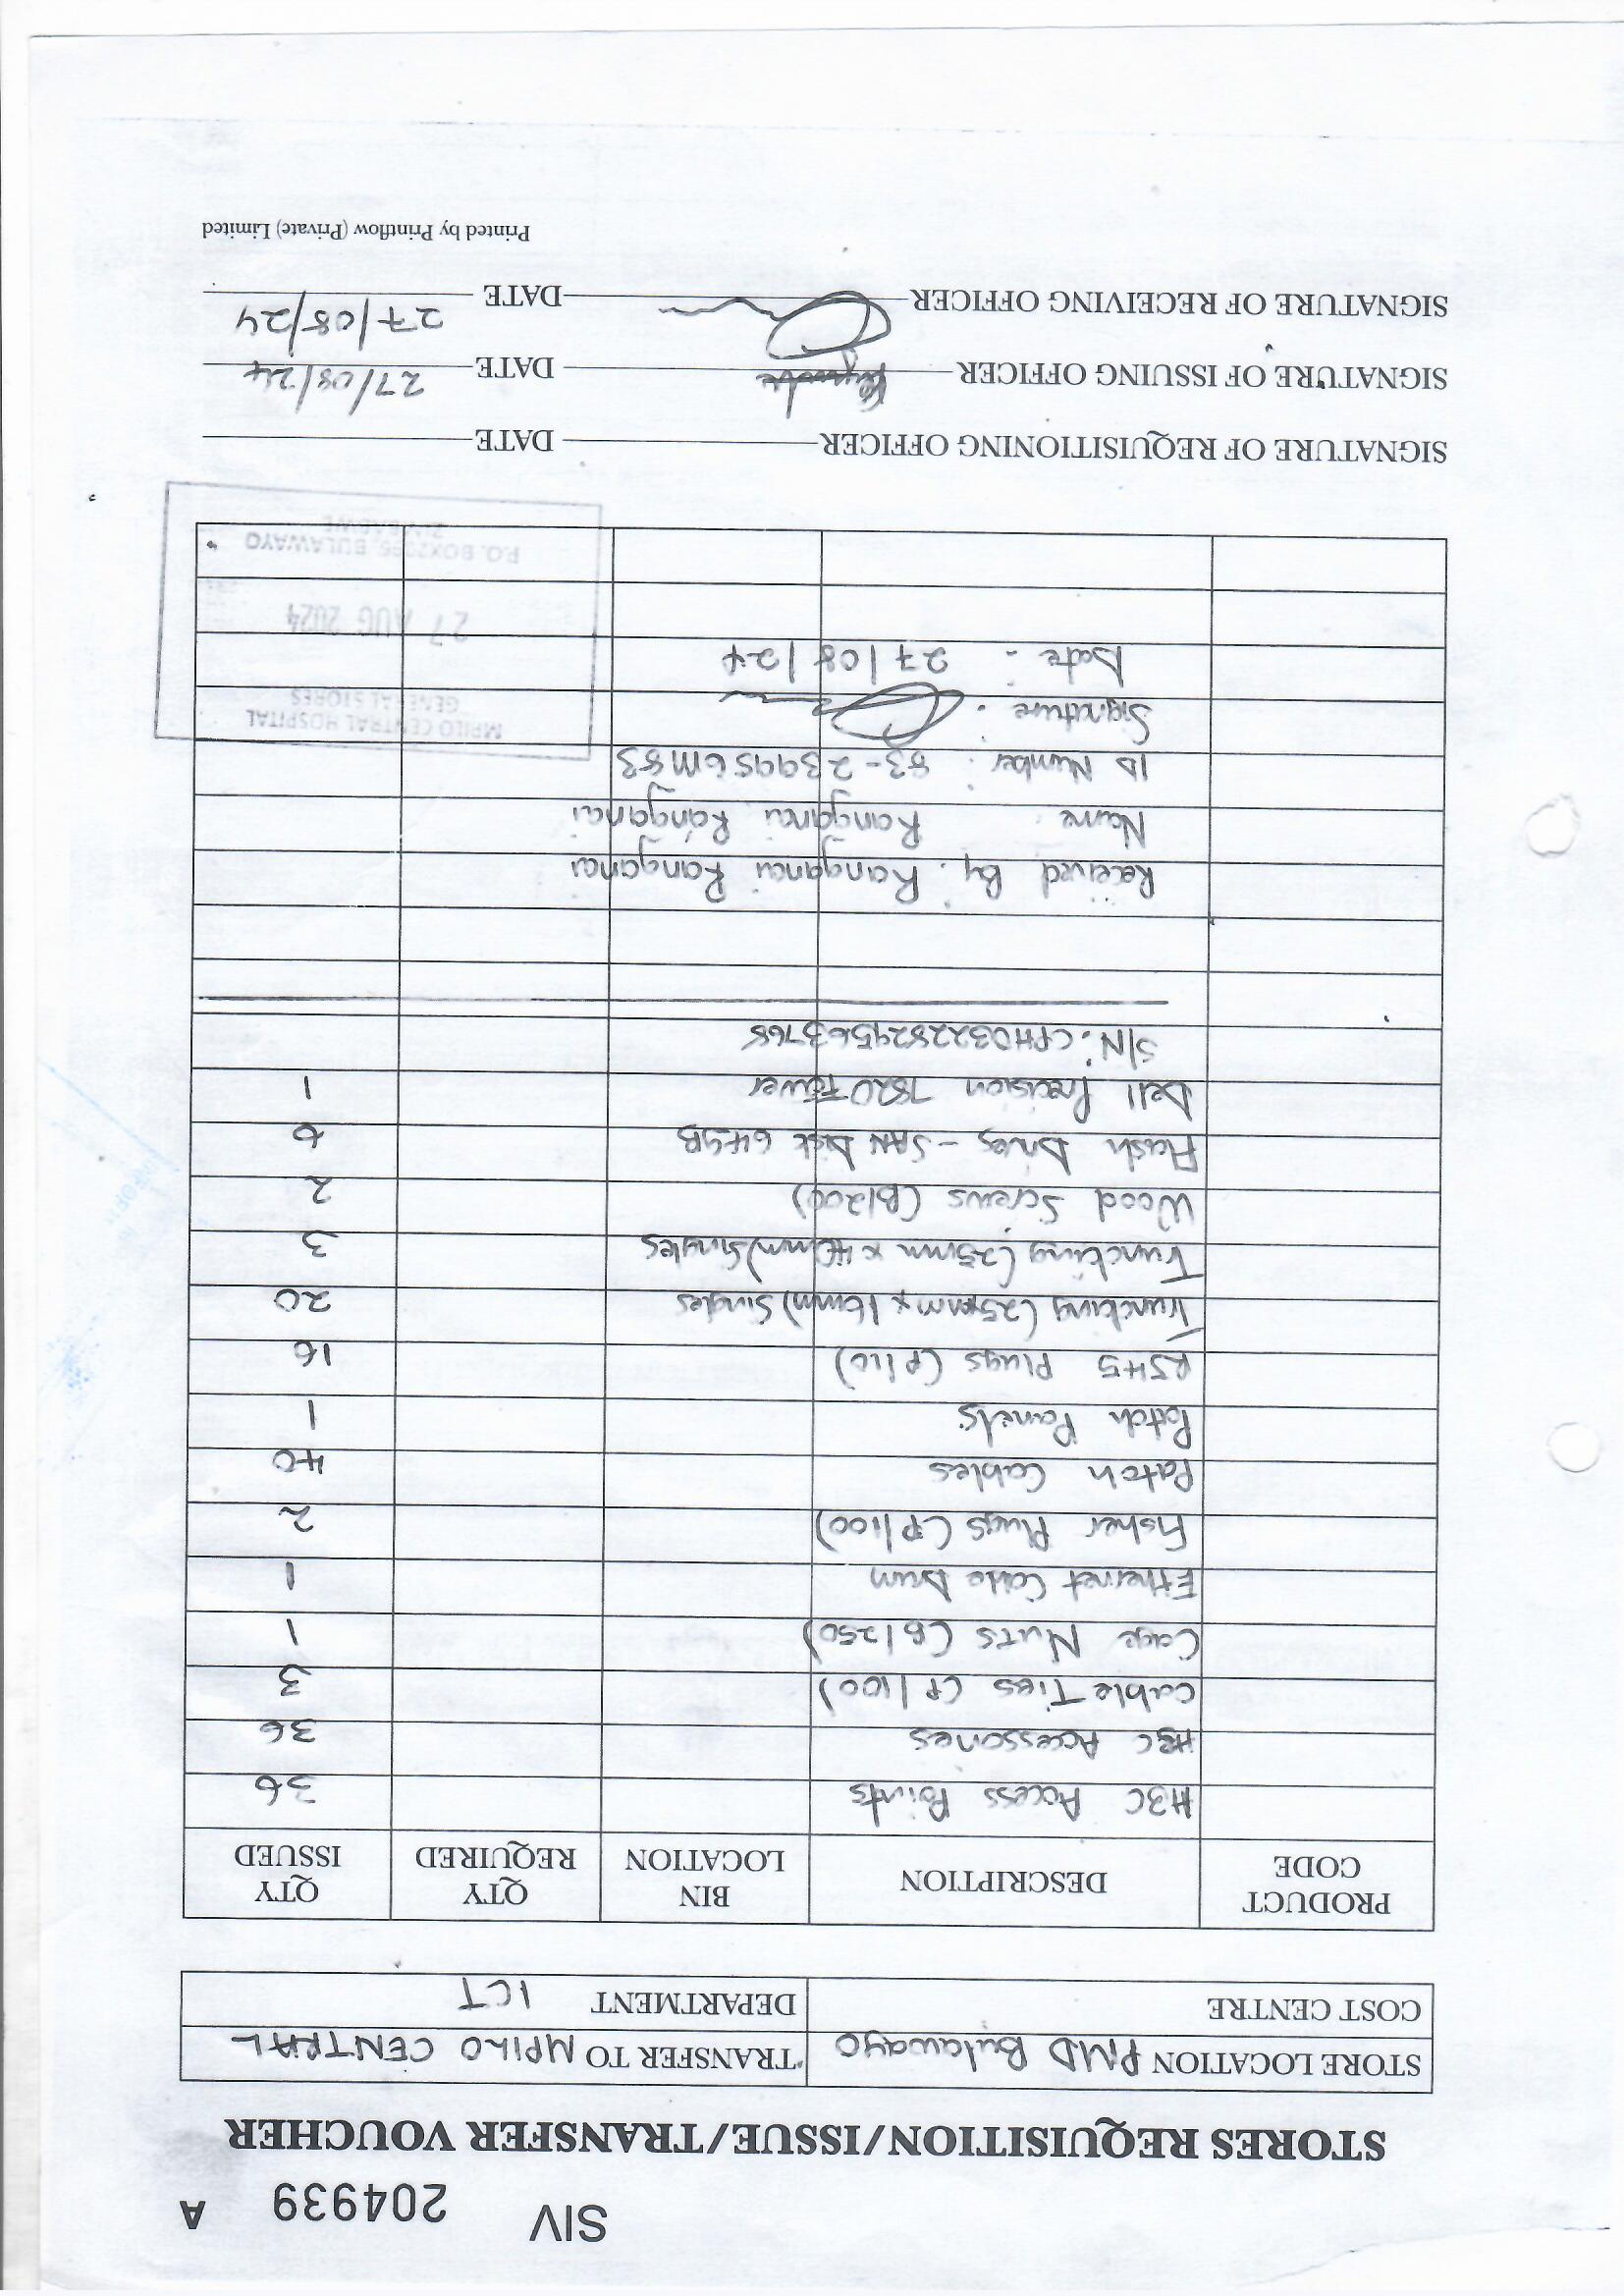 SIV 204939 A
STORES REQUISITION/ISSUE/TRANSFER VOUCHER
STORE LOCATION PMD Bulawayo TRANSFER TO MPILO CENTRAL
COST CENTRE DEPARTMENT ICT
PRODUCT CODE DESCRIPTION BIN LOCATION QTY REQUIRED QTY ISSUED
H3C Access Points 36
H3C Accessories 36
Cable Ties (P/100) 3
Cage Nuts (B/250) 1
Ethernet Cable Drum 1
Fisher Plugs (P/100) 2
Patch Cables 40
Patch Panels 1
RJ45 Plugs (P/10) 16
Trunking (25mm x 16mm) Singles 20
Trunking (25mm x 40mm) Singles 3
Wood Screws (B/200) 2
Flash Drives - SAN Disk 64GB 6
Dell Precision 7820 Tower 1
S/N: CPH0322829563768
Received By: Ranganai Ranganai
Name Ranganai Ranganai
ID Number: 83-239956M83
Signature:
Date: 27/08/24
MPILO CENTRAL HOSPITAL
GENERAL STORES
27 AUG 2024
P.O. BOX 2096, BULAWAYO
ZIMBABWE
SIGNATURE OF REQUISITIONING OFFICER DATE
SIGNATURE OF ISSUING OFFICER DATE 27/08/24
SIGNATURE OF RECEIVING OFFICER DATE 27/08/24
Printed by Printflow (Private) Limited